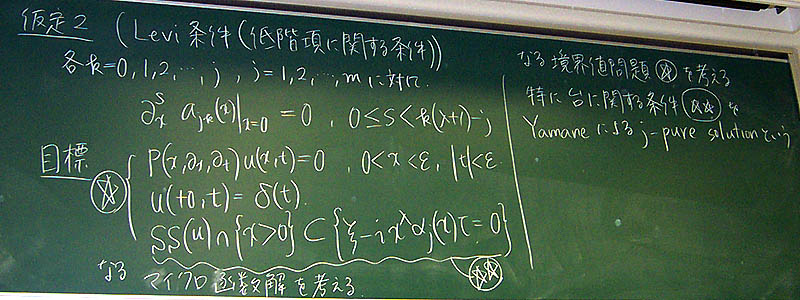 仮定2 (Levi条件(低階項に関する条件))
各k=0,1,2,…,j, j=1,2,…,mに対して
∂ₓˢ a_{j,k}(x)|_{x=0} = 0, 0≤s<k(λ+1)-j
目標
☆ { P(x,∂ₓ,∂ₜ)u(x,t)=0, 0<x<ε, |t|<ε
u(+0,t)=δ(t).
SS(u)∩{x>0}⊂{ξ-ix^λ α_j(x)τ=0}
☆☆
なる マイクロ函数解を考える.
なる境界値問題 ☆ を考える
特に台に関する条件 ☆☆ を
Yamaneによるj-pure solutionという